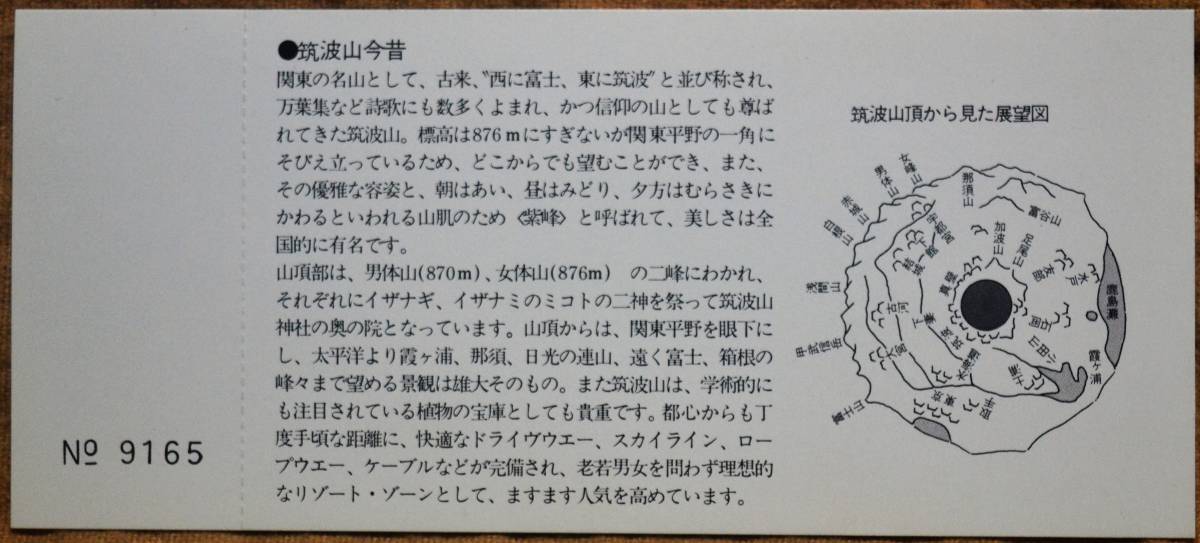 ●筑波山今昔
関東の名山として、古来、〝西に富士、東に筑波〟と並び称され、
万葉集など詩歌にも数多くよまれ、かつ信仰の山としても尊ば
れてきた筑波山。標高は876mにすぎないが関東平野の一角に
そびえ立っているため、どこからでも望むことができ、また、
その優雅な容姿と、朝はあい、昼はみどり、夕方はむらさきに
かわるといわれる山肌のため〈紫峰〉と呼ばれて、美しさは全
国的に有名です。
山頂部は、男体山(870m)、女体山(876m) の二峰にわかれ、
それぞれにイザナギ、イザナミのミコトの二神を祭って筑波山
神社の奥の院となっています。山頂からは、関東平野を眼下に
し、太平洋より霞ヶ浦、那須、日光の連山、遠く富士、箱根の
峰々まで望める景観は雄大そのもの。また筑波山は、学術的に
も注目されている植物の宝庫としても貴重です。都心からも丁
度手頃な距離に、快適なドライヴウエー、スカイライン、ロー
プウエー、ケーブルなどが完備され、老若男女を問わず理想的
なリゾート・ゾーンとして、ますます人気を高めています。
№ 9165
筑波山頂から見た展望図
女峰山
男体山
赤城山
白根山
浅間山
甲武信岳
富士山
那須山
富谷山
宇都宮
加波山
足尾山
下館
結城
真壁
友部
水戸
鹿島灘
古河
下妻
筑波
石岡
大宮
水海道
小田山
土浦
霞ヶ浦
東京
取手